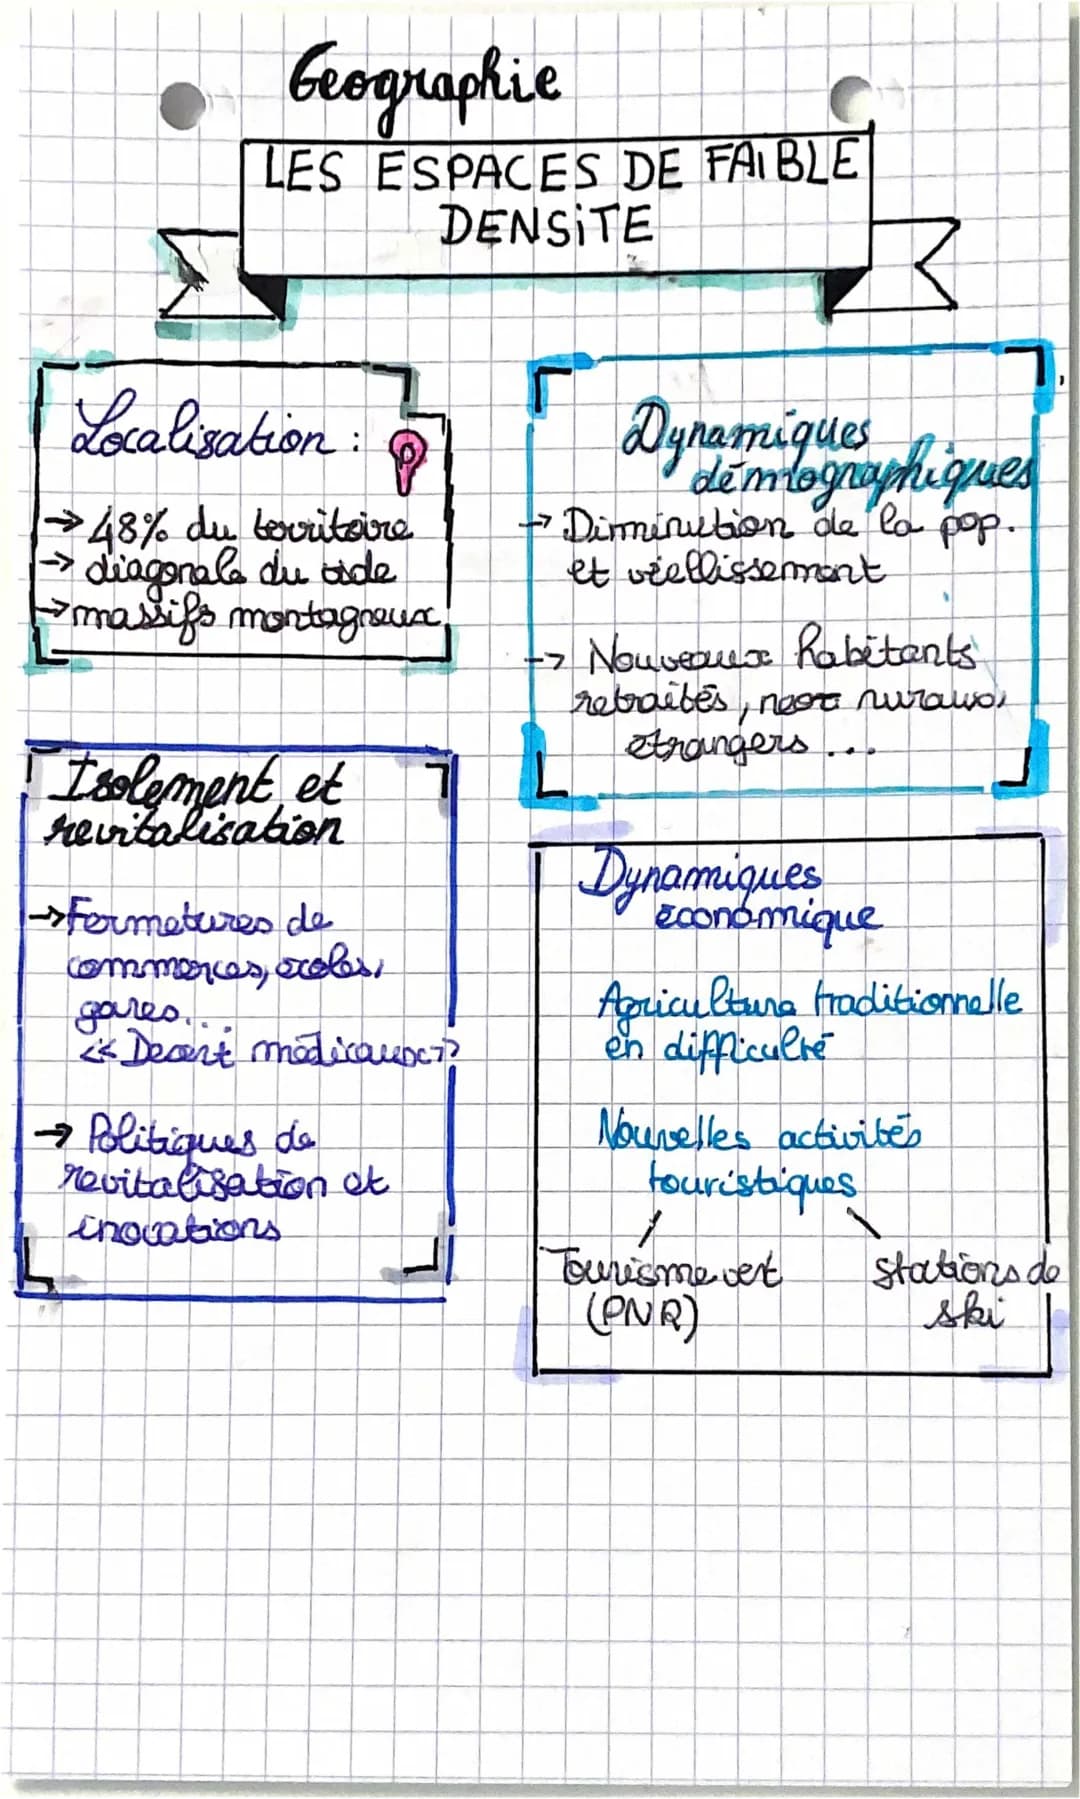 Geographie
LES ESPACES DE FAIBLE
DENSiTE
Localisation :
→ 48% du territoire
→ diagonale du vide
→ massifs montagneux
Dynamiques
démographiques
→ Diminution de la pop.
et viellissement
→ Nouveaux habitants
retraités, neos ruraux,
etrangers ...
Isolement et
revitalisation
→ Fermetures de
commerces, ecoles,
gares...
<< Desert médicaux >>
→ Politiques de
revitalisation et
inovations
Dynamiques
économique
Agriculture traditionnelle
en difficulté
Nouvelles activités
touristiques
Tourisme vert
(PNR)
stations de
ski